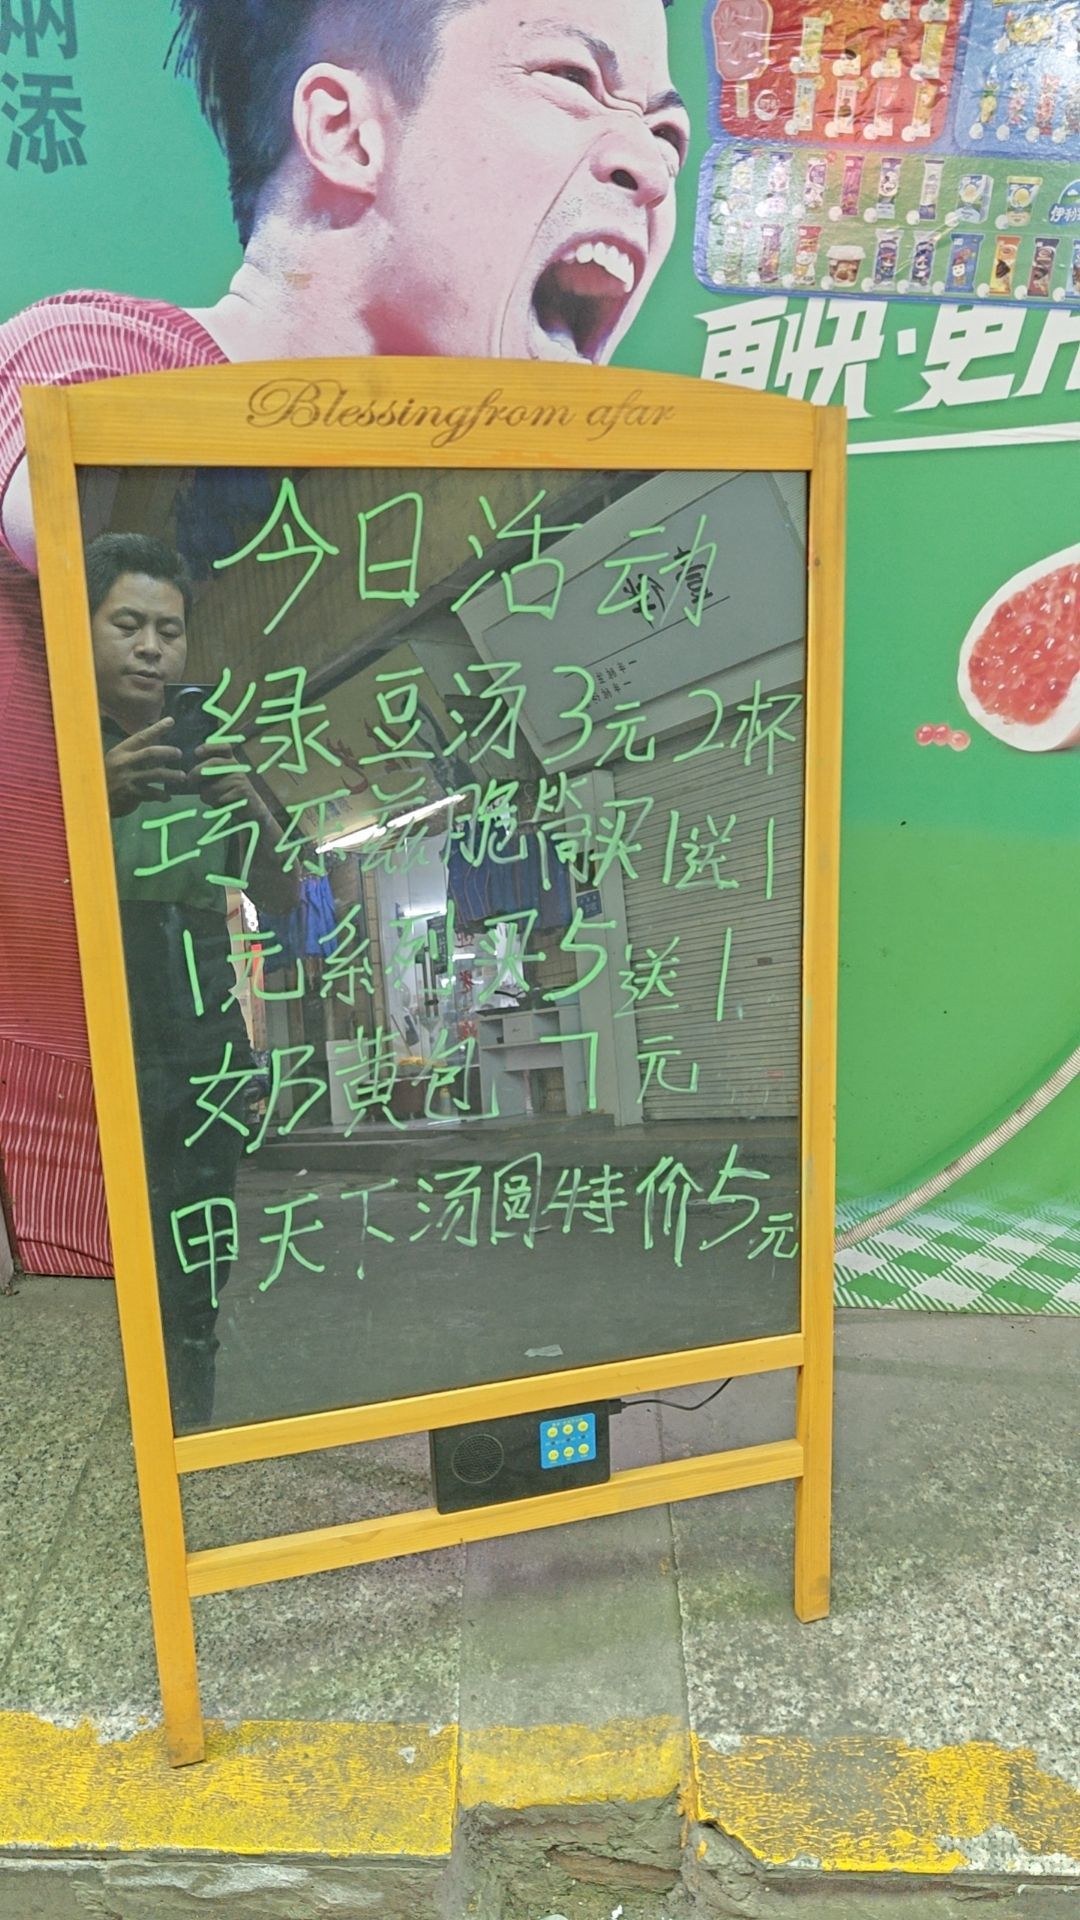 添
伊利
更快·更
Blessingfrom afar
今日活动
绿豆汤3元2杯
巧乐兹脆筒买1送1
1元系列买5送1
奶黄包 7元
甲天下汤圆特价5元